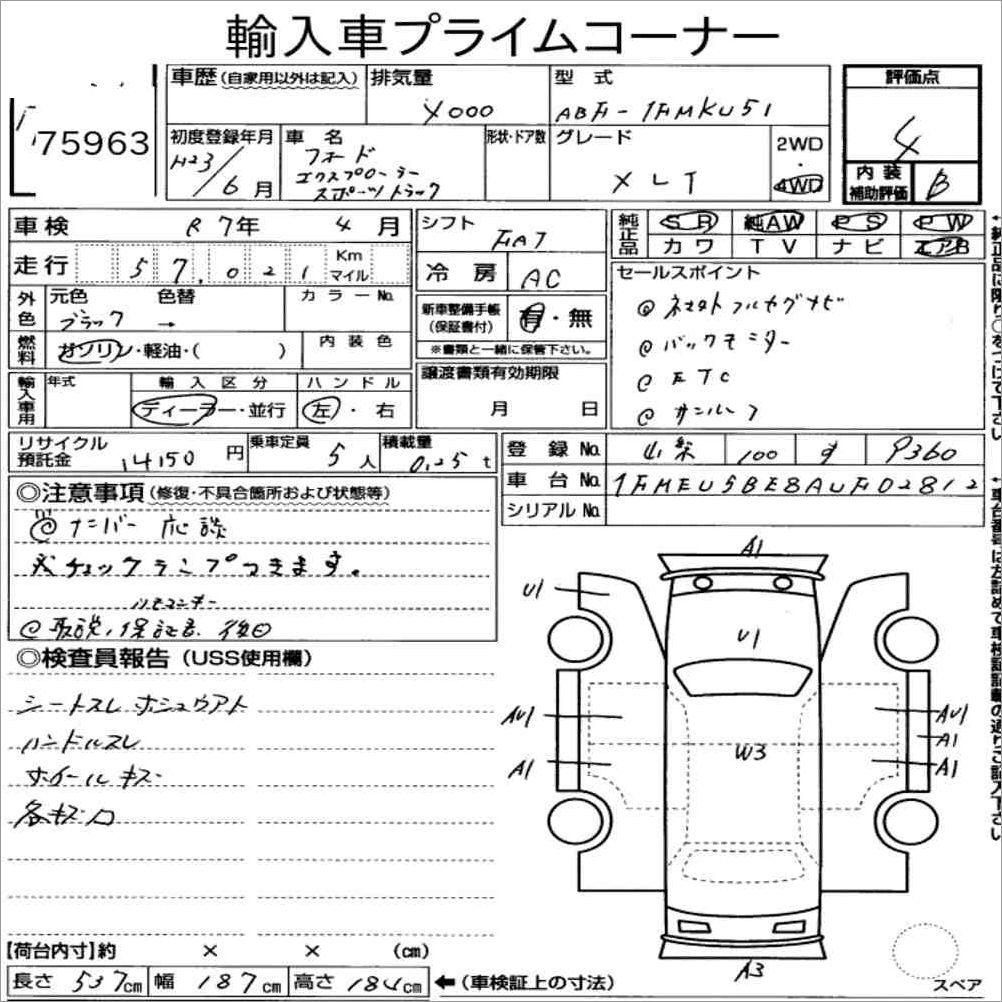 輸入車プライムコーナー
75963
車歴(自家用以外は記入) 排気量 型式 評価点
4000 ABA-1FMKU51 4
初度登録年月 車名 形状・ドア数 グレード 2WD・4WD
H23/6月 フォード エクスプローラー スポーツトラック XLT
内装補助評価 B
車検 R7年 4月 シフト FAT
純正品 SR 純AW PS PW
カワ TV ナビ エアB
走行 57,021 Km マイル
冷房 AC
セールスポイント
外色 元色 色替 カラーNo.
ブラック →
新車整備手帳(保証書付) 有・無
※書類と一緒に保管下さい。
◎社外フルセグナビ
◎バックモニター
◎ETC
◎サンルーフ
燃料 ガソリン・軽油・( ) 内装色
譲渡書類有効期限
月 日
輸入車用 年式 輸入区分 ハンドル
ディーラー・並行 左・右
リサイクル預託金 14150円 乗車定員 5人 積載量 0.25t
登録No. 山梨 100 す 9360
車台No. 1FMEU5BE8AUF02812
シリアルNo.
◎注意事項(修復・不具合箇所および状態等)
◎ナンバー応談
※チェックランプつきます。
リモコンキー
◎取説、保証書、後日
◎検査員報告(USS使用欄)
シートスレ
ハンドルスレ
ホイールキズ
各キズ凹
A1
U1
U1
AU1
W3
AU1
A1
A1
A1
A3
スペア
【荷台内寸】約 × × (cm)
長さ 537cm 幅 187cm 高さ 184cm ←(車検証上の寸法)